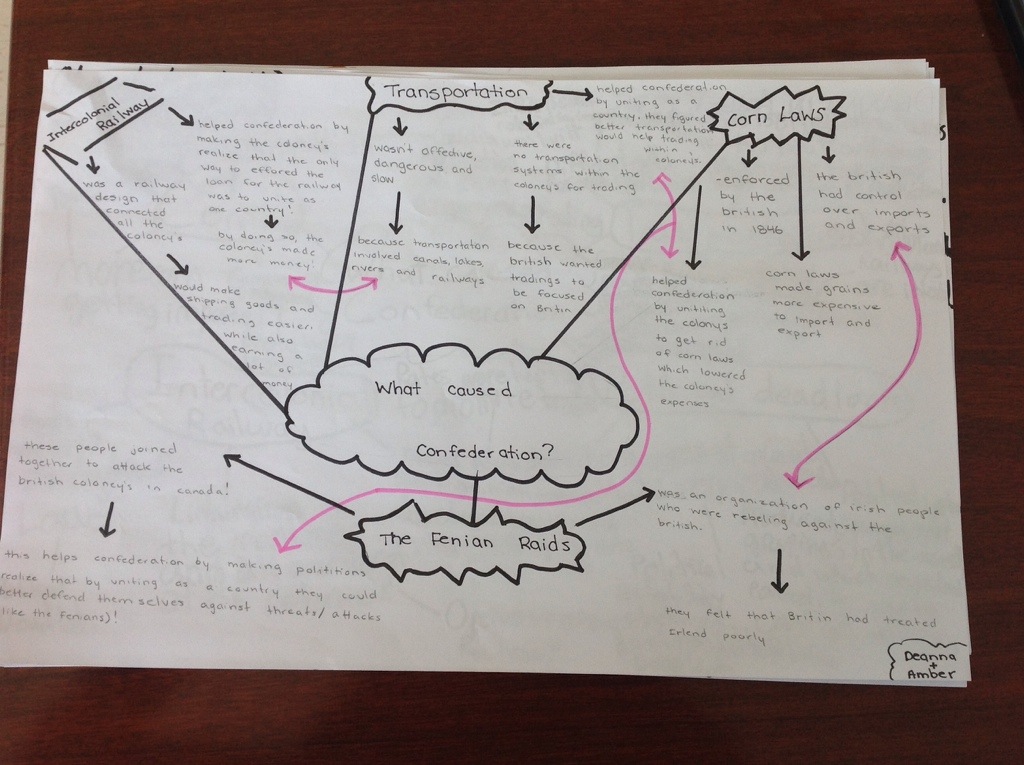 Intercolonial
Railway
helped confederation by
making the coloney's
realize that the only
way to effored the
loan for the railway
was to unite as
one country!
by doing so, the
coloney's made
more money!
was a railway
design that
connected
all the
coloney's
would make
shipping goods, and
trading easier.
while also
earning a
lot of
money
Transportation
wasn't offective,
dangerous and
slow
because transportation
involved canals, lakes,
rivers and railways
there were
no transportation
systems within the
coloneys for trading
because the
british wanted
tradings to
be focused
on Britin
helped confederation
by uniting as a
country. they figured
better transportation
would help trading
within
coloneys.
Corn Laws
-enforced
by the
british
in 1846
the british
had control
over imports
and exports
corn laws
made grains
more expensive
to import and
export
helped
confederation
by unititing
the colonys
to get rid
of corn laws
which lowered
the coloney's
expenses
What caused
Confederation?
The Fenian Raids
these people joined
together to attack the
british coloney's in canada!
this helps confederation by making polititions
realize that by uniting as a country they could
better defend them selves against threats/attacks
like the Fenians)!
was an organization of irish people
who were rebeling against the
british.
they felt that Britin had treated
Irlend poorly
Deanna
+
Amber